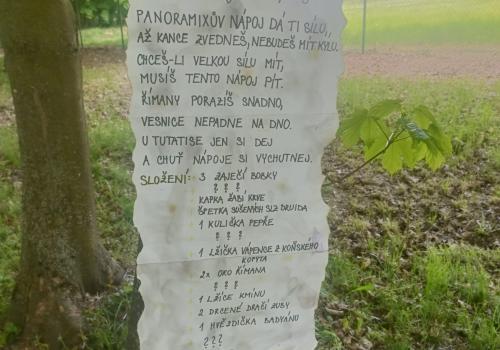 PANORAMIXŮV NÁPOJ DÁ TI SÍLU,
AŽ KANCE ZVEDNEŠ, NEBUDEŠ MÍT KÝLU.
CHCEŠ-LI VELKOU SÍLU MÍT,
MUSÍŠ TENTO NÁPOJ PÍT.
ŘÍMANY PORAZÍŠ SNADNO,
VESNICE NEPADNE NA DNO.
U TUTATISE JEN SI DEJ
A CHUŤ NÁPOJE SI VYCHUTNEJ.
SLOŽENÍ: 3 ZAJEČÍ BOBKY
? ? ?
KAPKA ŽABÍ KRVE
ŠPETKA SUŠENÝCH SLZ DRUIDA
1 KULIČKA PEPŘE
? ? ?
1 LŽIČKA VÁPENCE Z KOŇSKÉHO
KOPYTA
2x OKO ŘÍMANA
? ? ?
1 LŽÍCE KMÍNU
2 DRCENÉ DRAČÍ ZUBY
1 HVĚZDIČKA BADYÁNU
???